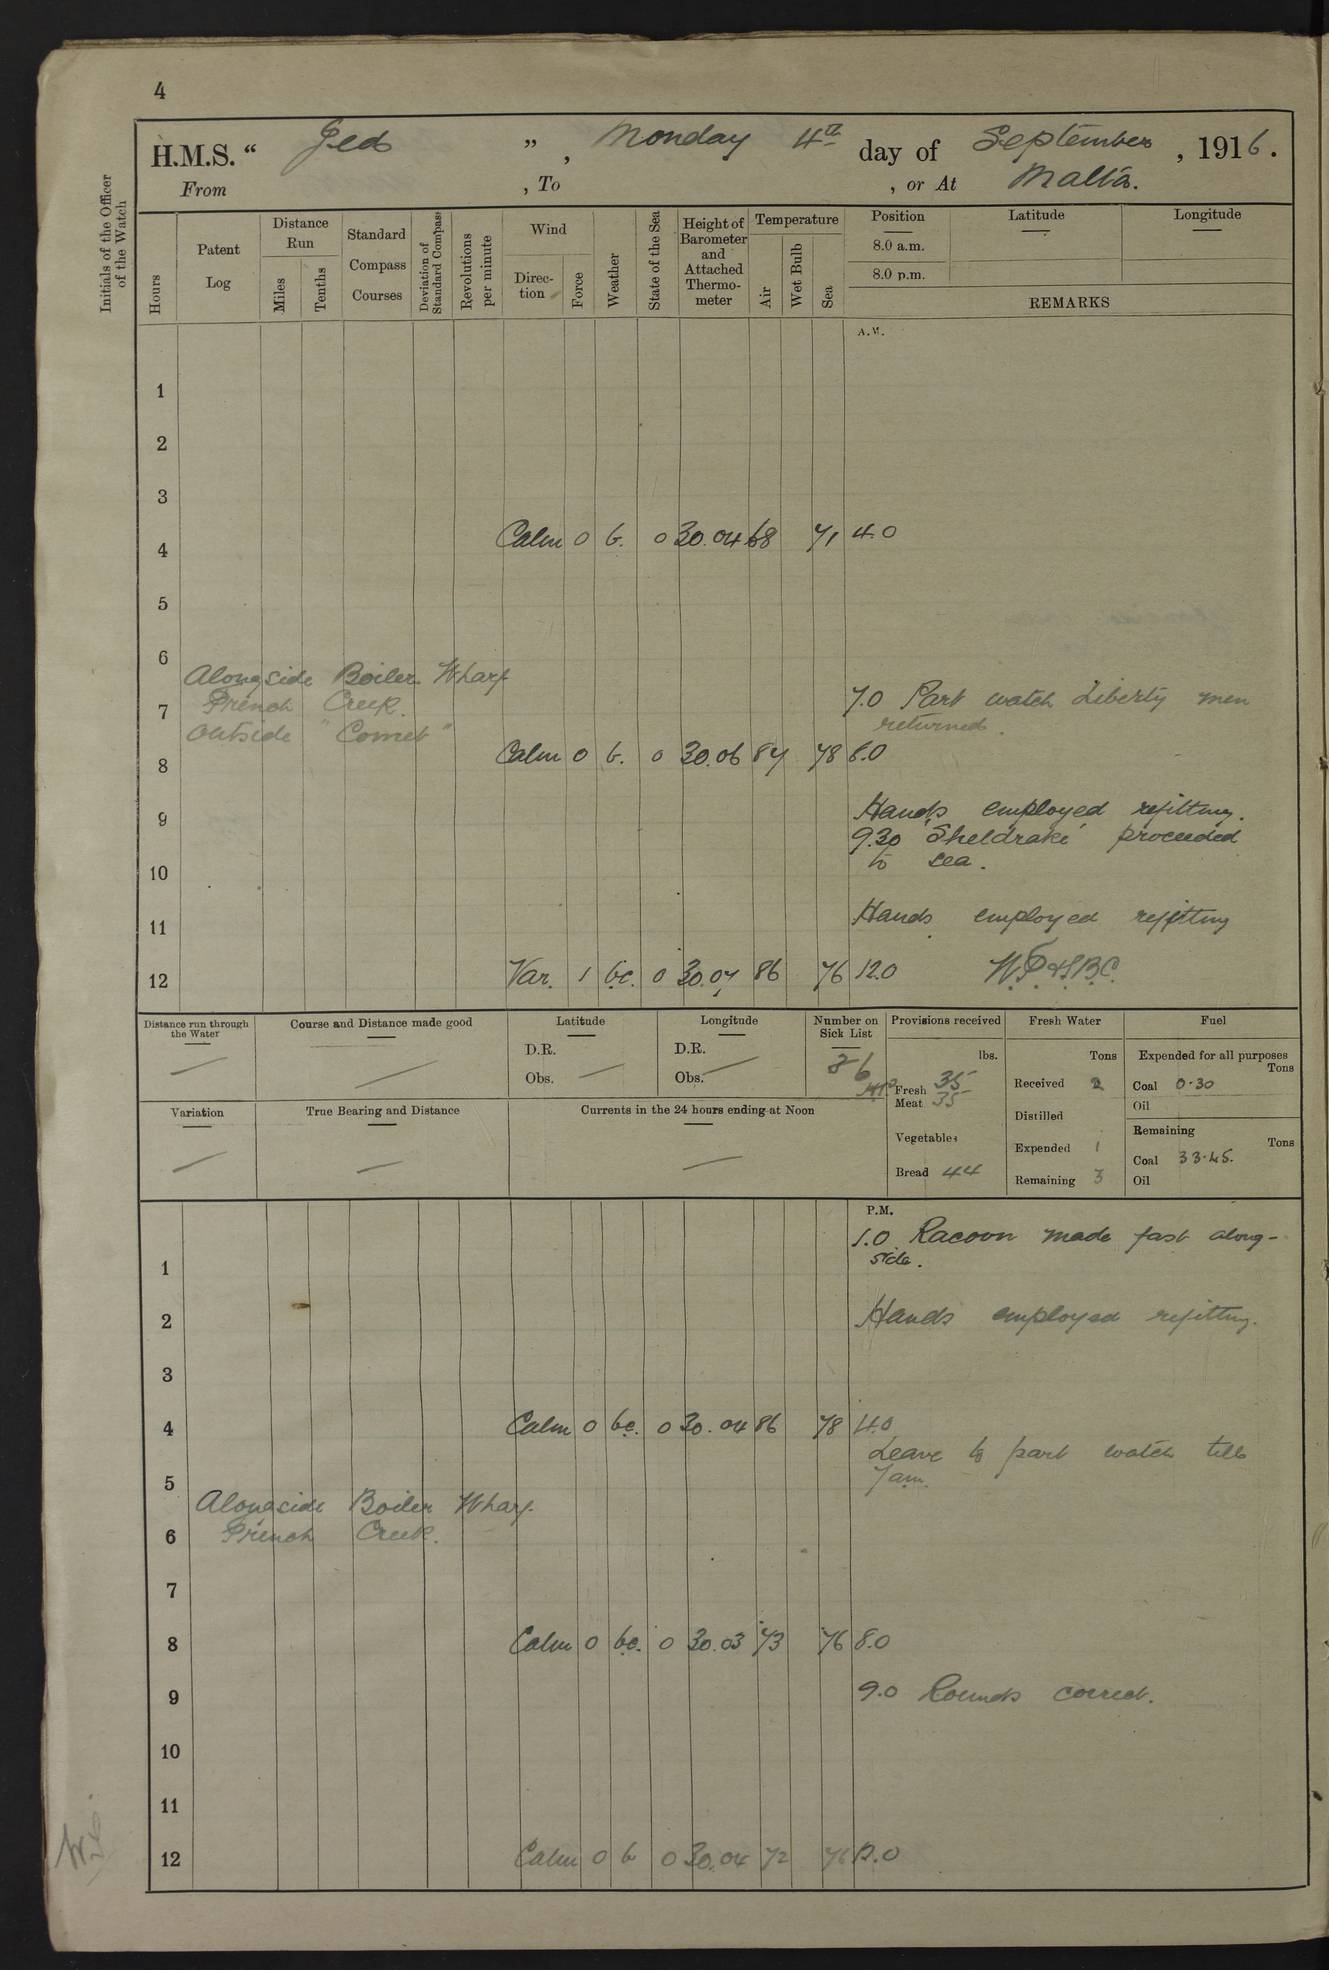 4
H.M.S. “ Ged ” , Monday 4th day of September , 1916.
From , To , or At Malta.
Initials of the Officer of the Watch
Hours
Patent Log
Distance Run
Miles
Tenths
Standard Compass Courses
Deviation of Standard Compass
Revolutions per minute
Wind
Direction
Force
Weather
State of the Sea
Height of Barometer and Attached Thermometer
Temperature
Air
Wet Bulb
Sea
Position
Latitude
Longitude
8.0 a.m.
8.0 p.m.
REMARKS
A.M.
1
2
3
4 Calm 0 b. 0 30.04 68 71 4.0
5
6
Alongside Boiler Wharf
French Creek.
7 7.0 Part watch Liberty men
returned.
Outside "Comet"
8 Calm 0 b. 0 30.06 84 78 8.0
9 Hands employed refitting.
9.30 'Sheldrake' proceeded
10 to sea.
11 Hands employed refitting
12 Var. 1 bc. 0 30.07 86 76 12.0
Distance run through the Water
Course and Distance made good
Latitude
D.R.
Obs.
Longitude
D.R.
Obs.
Number on Sick List
Provisions received
lbs.
Fresh 35
Meat 35
Vegetables
Bread 44
Fresh Water
Tons
Received 2
Distilled
Expended 1
Remaining 3
Fuel
Expended for all purposes
Tons
Coal 0.30
Oil
Remaining
Tons
Coal 33.45.
Oil
Variation
True Bearing and Distance
Currents in the 24 hours ending at Noon
P.M.
1.0 Racoon made fast along-
1 side.
2 Hands employed refitting.
3
4 Calm 0 bc. 0 30.04 86 78 4.0
Leave to part watch till
5 7am.
Alongside Boiler Wharf.
6 French Creek.
7
8 Calm 0 bc. 0 30.03 73 76 8.0
9 9.0 Rounds correct.
10
11
12 Calm 0 b 0 30.04 72 76 12.0